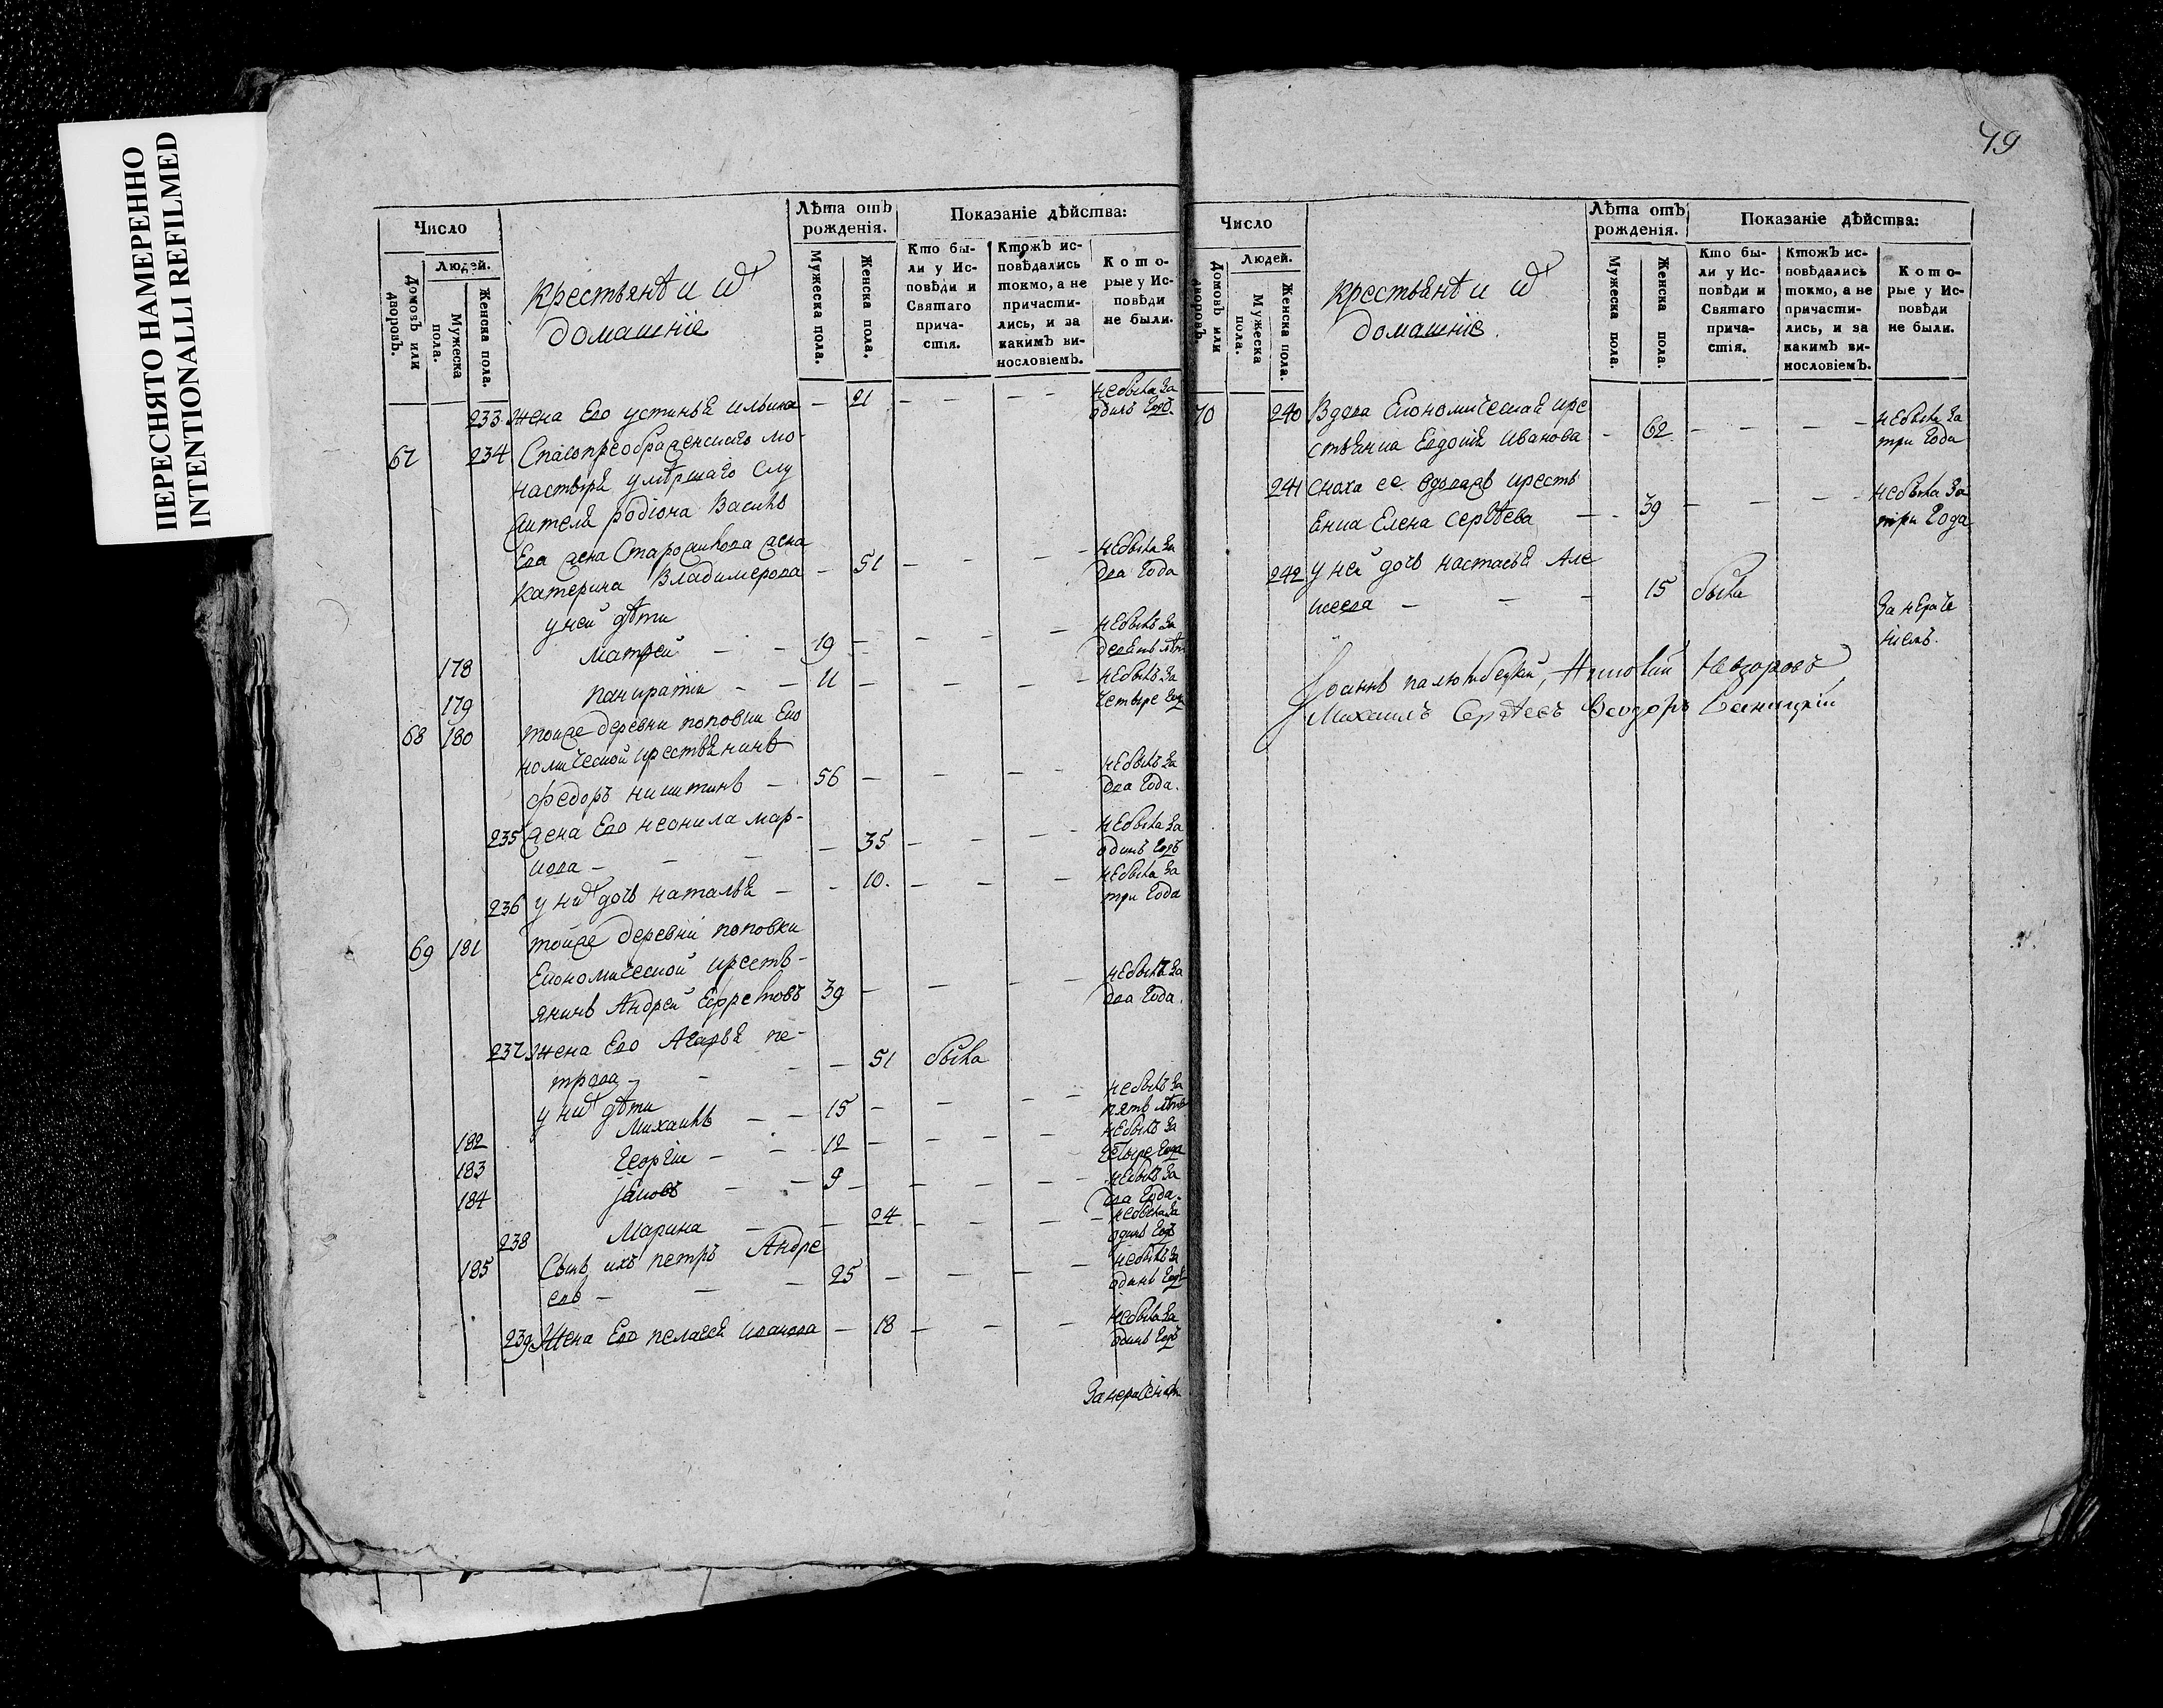 ПЕРЕСНЯТО НАМЕРЕННО
INTENTIONALLI REFILMED
Число
Людей.
Домовъ или дворовъ.
Мужеска пола.
Женска пола.
Крестьянѣ и ихъ
домашніе
Лѣта отъ
рожденія.
Мужеска пола.
Женска пола.
Показаніе дѣйства:
Кто бы-
ли у Ис-
повѣди и
Святаго
прича-
стія.
Ктожъ ис-
повѣдались
токмо, а не
причасти-
лись, и за
какимъ ви-
нословіемъ.
Кото-
рые у Ис-
повѣди
не были.
233 жена Его устинья ильина — 21 — — — — небыла за
одинъ годъ.
67 234 Спасопреображенскаго мо-
настыря умершаго слу
жителя родіона Василь
Ева жена Старожикова жена небыла за
катерина Владимерова — 51 — — — — два года
у ней дѣти
178 Матфей — — 19 — — — небылъ за
девять лѣтъ
179 панкратіи — — 11 — — — небылъ за
четыре года
68 180 тойже деревни поповки Еко
номической крестьянинъ
федоръ никитинъ — 56 — — — — небылъ за
два года.
235 жена Его неонила мар-
кова — — — — 35 — — — небыла за
одинъ годъ
236 у нихъ дочь наталья — — 10. — — — небыла за
три года
69 181 тойже деревни поповки
Економической кресть-
янинъ Андрей Ефремовъ 39 — — — — небылъ за
два года.
237 жена Его Агафья пе-
трова — — — — 51 была
у нихъ дѣти
182 Михаилъ — — 15 — — — — небылъ за
пять лѣтъ
183 георгіи — — 12 — — — — небылъ за
четыре года
184 яковъ — — 9 — — — — небылъ за
два года.
238 Марина — — 04 — — — — небыла за
одинъ годъ
185 Сынъ ихъ петръ Андре
евъ — — — 25 — — — — небылъ за
одинъ годъ
239 Жена Его пелагея иванова — 18 — — — небыла за
одинъ годъ
79
Число
Людей.
Домовъ или дворовъ.
Мужеска пола.
Женска пола.
крестьянѣ и ихъ
домашніе.
Лѣта отъ
рожденія.
Мужеска пола.
Женска пола.
Показаніе дѣйства:
Кто бы-
ли у Ис-
повѣди и
Святаго
прича-
стія.
Ктожъ ис-
повѣдались
токмо, а не
причасти-
лись, и за
какимъ ви-
нословіемъ.
Кото-
рые у Ис-
повѣди
не были.
70 240 Вдова Економическая кре
стьянка Евдокія Иванова — 62 — — — — небыла за
три года
241 сноха ее вдова кресть
Енка Елена Сергѣева — — 39 — — — — небыла за
три года
242 у ней дочь настасья Але
ксеева — — — 15 была
за нераче
ніемъ.
Іоаннъ
Михаилъ Сергѣевъ Ѳеодоръ